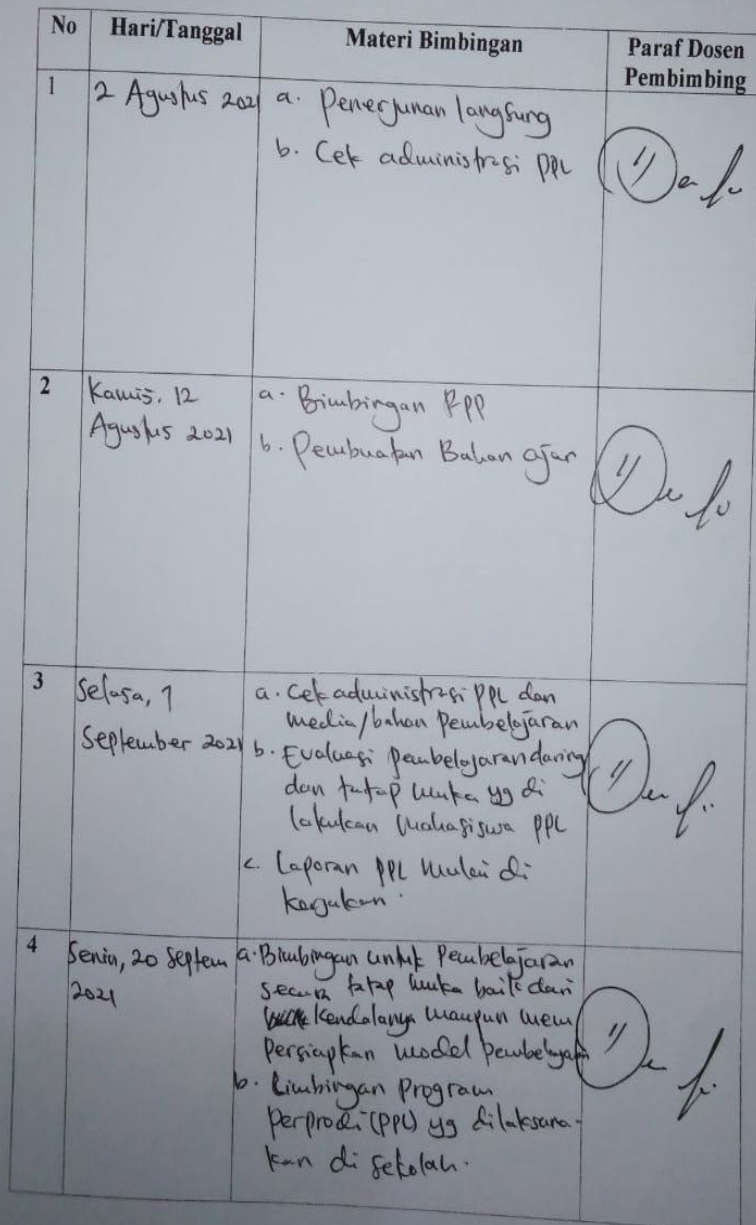 No Hari/Tanggal Materi Bimbingan Paraf Dosen
Pembimbing
1 2 Agustus 2021 a. Penerjunan langsung
b. Cek administrasi PPL
2 Kamis, 12 a. Bimbingan RPP
Agustus 2021 b. Pembuatan Bahan ajar
3 Selasa, 7 a. Cek administrasi PPL dan
September 2021 media/bahan Pembelajaran
b. Evaluasi pembelajaran daring
dan tatap muka yg di
lakukan Mahasiswa PPL
c. Laporan PPL Mulai di
kerjakan.
4 Senin, 20 Septem a. Bimbingan untuk Pembelajaran
2021 secara tatap muka baik dari
kendalanya maupun mem
persiapkan model pembelajaran
b. Bimbingan Program
Perprodi (PPL) yg dilaksana-
kan di sekolah.